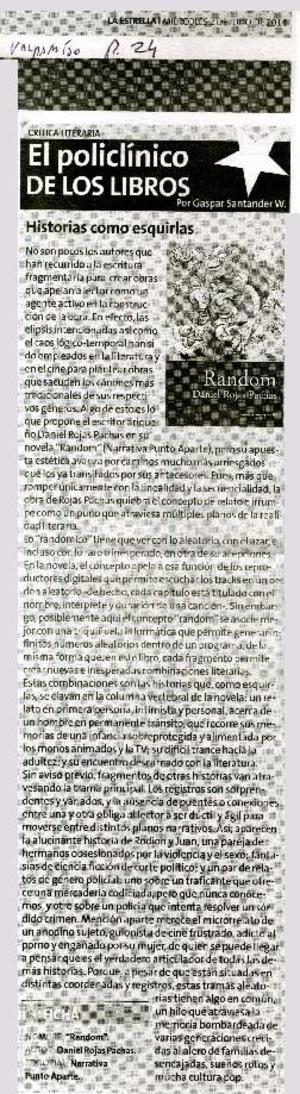 LA ESTRELLA | MIÉRCOLES 2 DE JULIO DE 2014
Valparaíso P. 24
CRÍTICA LITERARIA
El policlínico
DE LOS LIBROS
Por Gaspar Santander W.
Historias como esquirlas
Random
Daniel Rojas Pachas
No son pocos los autores que
han recurrido a la escritura
fragmentaria para crear obras
que apelan a lector como un
agente activo en la construc-
ción de la obra. En efecto, las
elipsis intencionadas así como
el caos lógico-temporal han si
do empleados en la literatura y
en el cine para plantear obras
que sacuden los cánones más
tradicionales de sus respecti-
vos géneros. Algo de esto es lo
que propone el escritor arique-
ño Daniel Rojas Pachas en su
novela "Random" (Narrativa Punto Aparte), pero su apues-
ta estética avanza por caminos mucho más arriesgados
que los ya transitados por sus antecesores. Pues, más que
romper únicamente con la linealidad y la secuencialidad, la
obra de Rojas Pachas quiebra el concepto de relato e irrum-
pe como un puño que atraviesa múltiples planos de la reali-
dad literaria.
Lo "randomico" tiene que ver con lo aleatorio, con el azar, e
incluso con lo raro o inesperado, en otra de sus acepciones.
En la novela, el concepto apela a esa función de los repro-
ductores digitales que permite escuchar los tracks en un or-
den aleatorio -de hecho, cada capítulo está titulado con el
nombre, intérprete y duración de una canción-. Sin embar-
go, posiblemente aquí el concepto "random" se asocie me-
jor con una triquiñuela informática que permite generar in-
finitos números aleatorios dentro de un programa, de la
misma forma que, en este libro, cada fragmento permite
crear nuevas e inesperadas combinaciones literarias.
Estas combinaciones son las historias que, como esquir-
las, se clavan en la columna vertebral de la novela: un re-
lato en primera persona, intimista y personal, acerca de
un hombre en permanente tránsito, que recorre sus me-
morias de una infancia sobreprotegida y alimentada por
los monos animados y la TV; su difícil trance hacia la
adultez; y su encuentro descarnado con la literatura.
Sin aviso previo, fragmentos de otras historias van atra-
vesando la trama principal. Los registros son sorpren-
dentes y variados, y la ausencia de puentes o conexiones
entre una y otra obliga al lector a ser dúctil y ágil para
moverse entre distintos planos narrativos. Así, aparecen
la alucinante historia de Rodion y Juan, una pareja de
hermanos obsesionados por la violencia y el sexo; fanta-
sías de ciencia ficción de corte político; y un par de rela-
tos de género policial: uno sobre un traficante que ofre-
ce una mercadería codiciada pero que nunca conoce-
mos, y otro sobre un policía que intenta resolver un sór-
dido crimen. Mención aparte merece el microrrelato de
un anodino sujeto, guionista de cine frustrado, adicto al
porno y enganado por su mujer, de quien se puede llegar
a pensar que es el verdadero articulador de todas las de-
más historias. Porque, a pesar de que están situadas en
distintas coordenadas y registros, estas tramas aleato-
rias tienen algo en común,
un hilo que atraviesa la
memoria bombardeada de
varias generaciones creci-
das al alero de familias de-
sencajadas, sueños rotos y
mucha cultura pop.
FICHA
NOMBRE: "Random".
AUTOR: Daniel Rojas Pachas.
EDITORIAL: Narrativa
Punto Aparte.